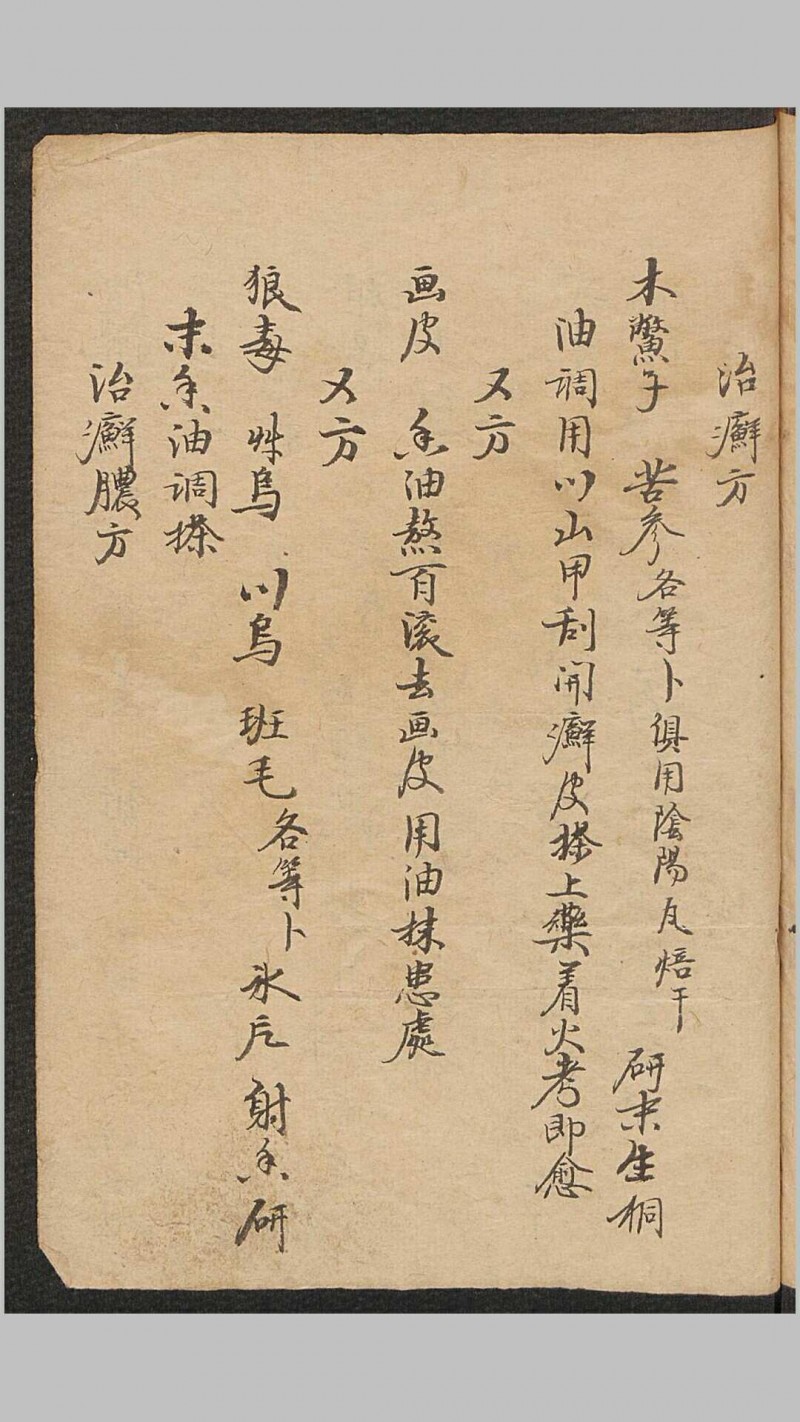 治癬方
木鱉子 苦参各等卜俱用陰陽瓦焙干 研末生桐
油调用川山甲刮開癬皮搽上藥着火考即愈
又方
画皮 香油熬百滚去画皮用油抹患處
又方
狼毒 草烏 川烏 班毛各等卜氷片 射香研
末香油调搽
治癬膿方